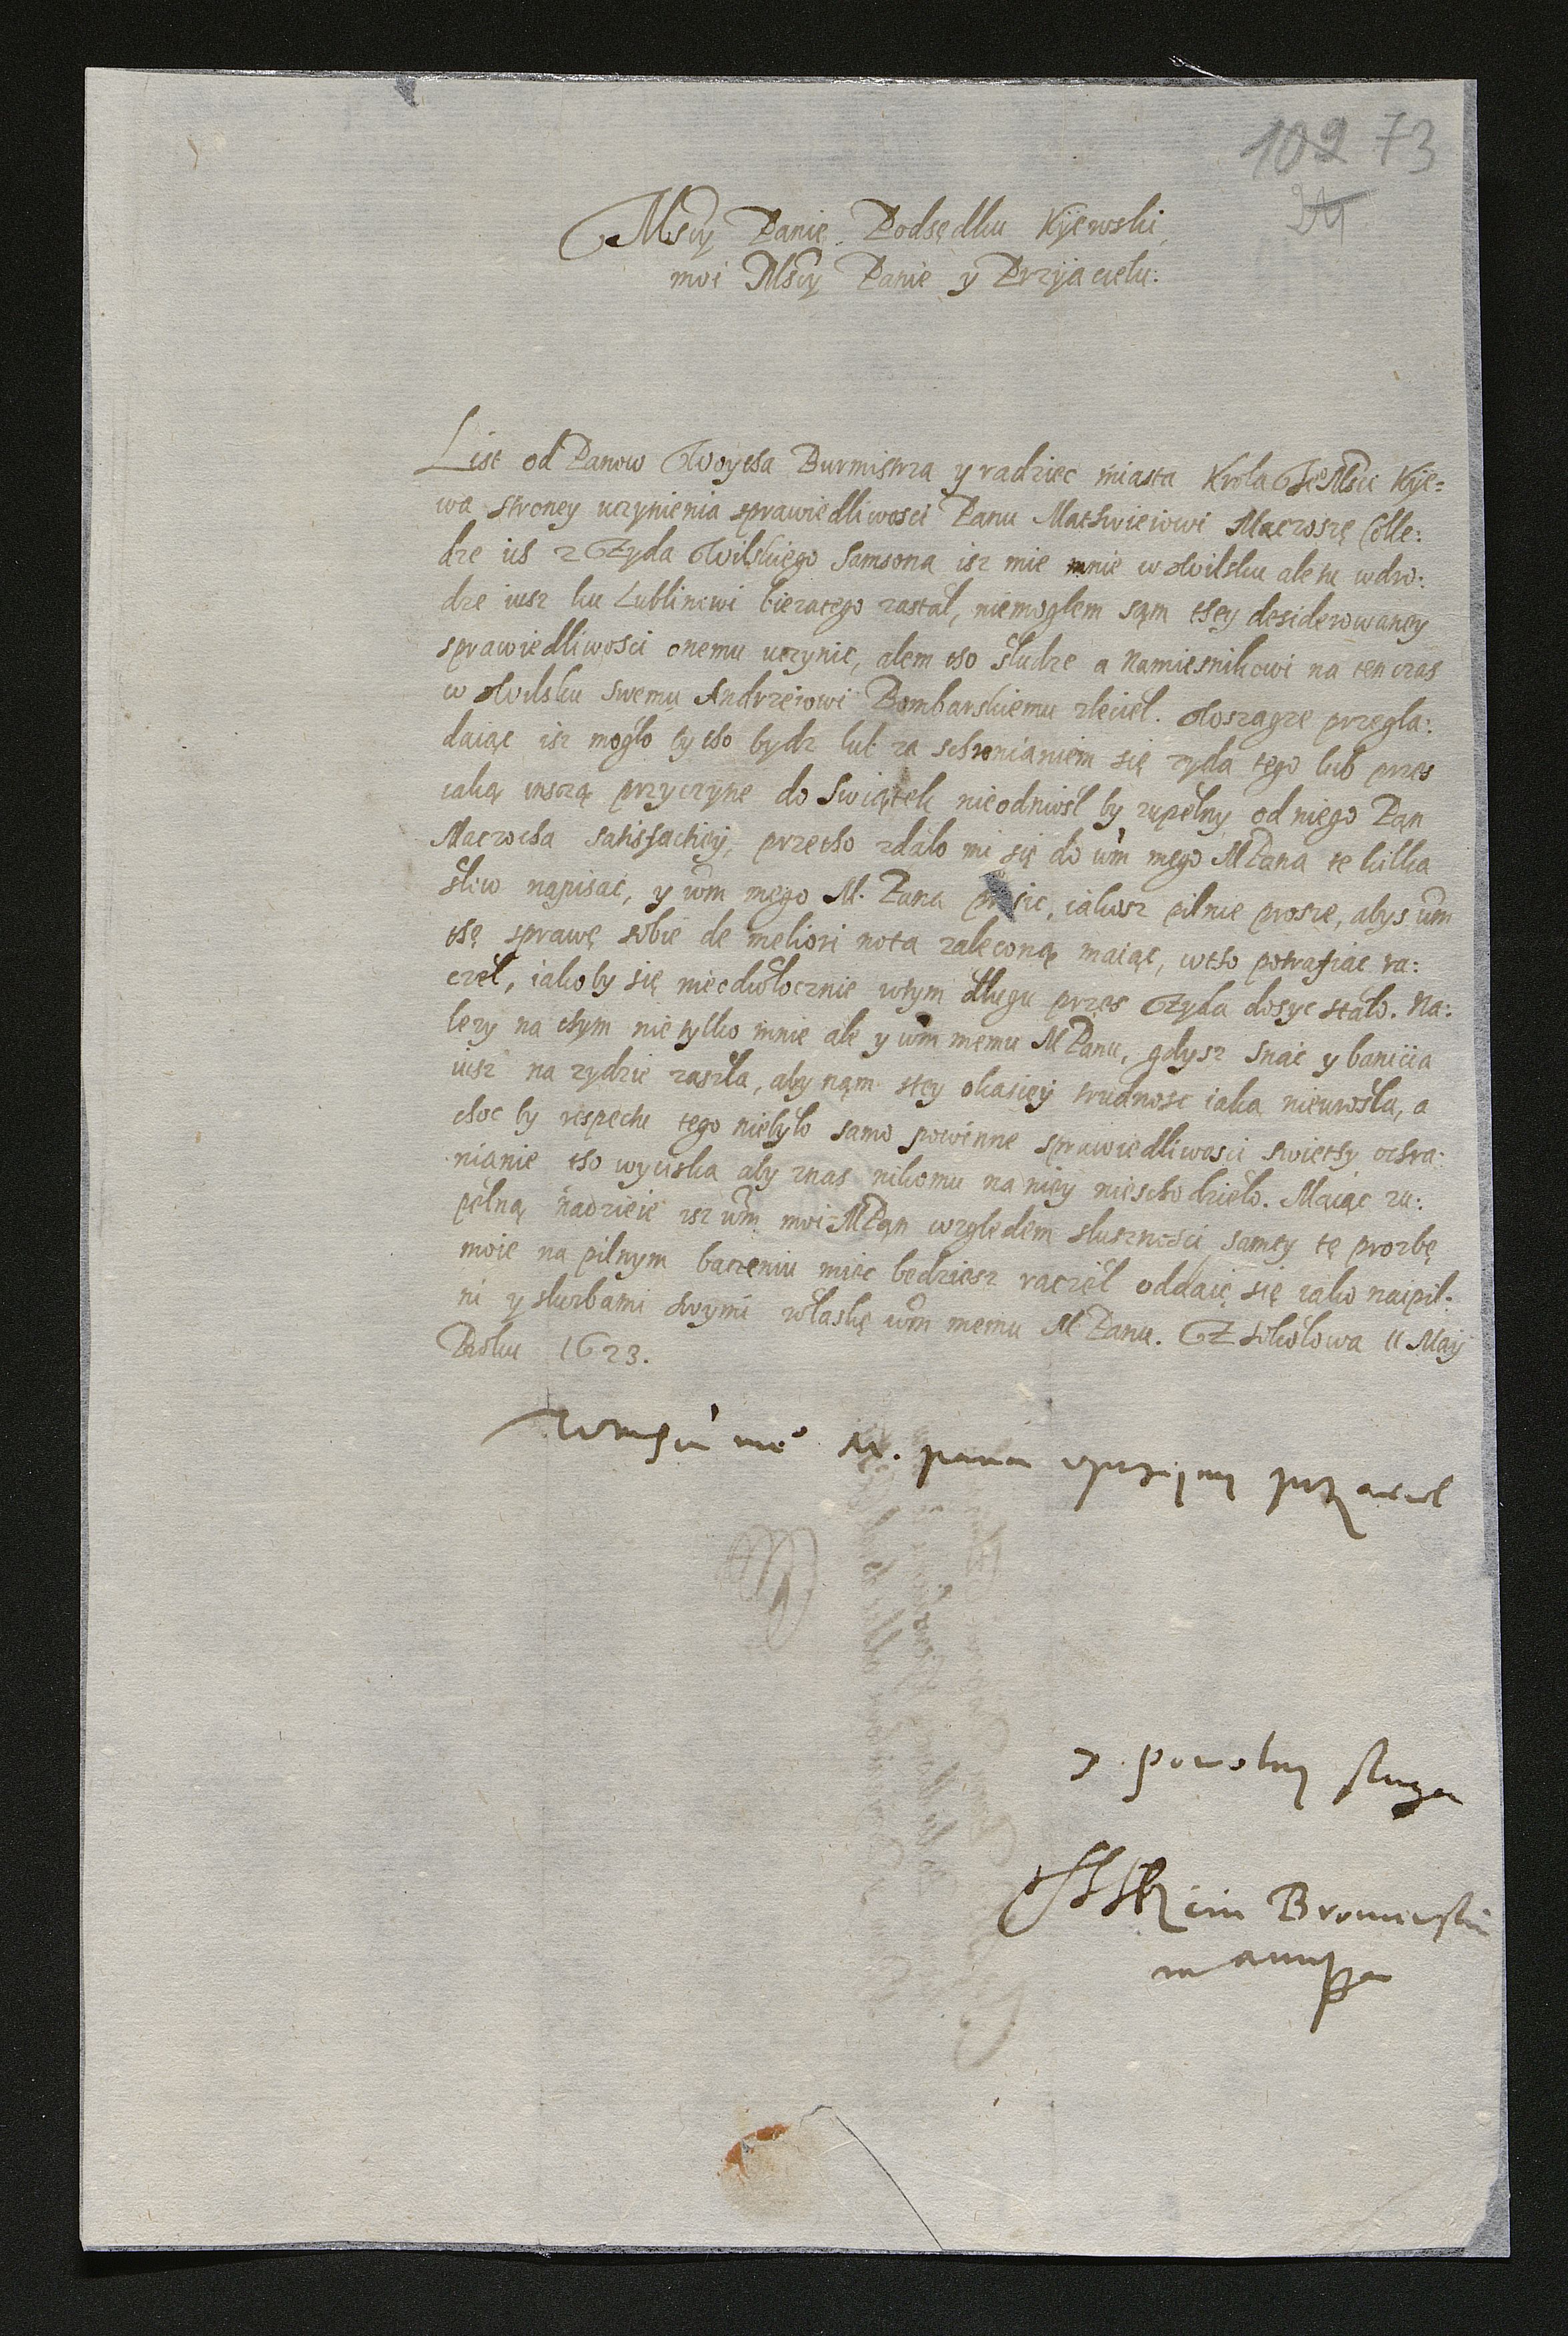 109 73
Mscy Panie Podsędku Kijewski,
moi Mscy Panie y Przyjacielu:
List od Panow Woytha Burmistrza y radziec miasta Krola Je Msci Kije=
wa stroney uczynienia sprawiedliwosci Panu Mathwieiowi Maczosze Colle:
dze ich z Zyda Wilskiego Samsona isz mie mnie w Wilsku ale tu wdro:
dze iusz ku Lublinowi bieżacego zastał, niemogłem sąm they desiderowaney
sprawiedliwosci onemu uczynic, alem tho słudze a Namiesnikowi na ten czas
w Wilsku swemu Andrzeiowi Bombarskiemu zleciel. Wszagze przegla:
daiąc isz mogło by tho bydz lub za schronianiem się zyda tego lub przes
iaką inszą przyczyne do Swiątek nieodniosł by zupełny od niego Pan
Maczocha satisfactiey, przetho zdało mi się do wm mego MPana te kilka
słow napisać, y wm mego M. Pana prosic, iakosz pilnie prosze, abys wm
thę sprawę sobie de meliori nota zaleconą maiąc, wtho potrafiac ra:
czeł, iakoby się nieodwłocznie wtym długu przes Zyda dosyc stało. Na:
lezy na thym nietylko mnie ale y wm memu MPanu, gdysz snać y baniciia
iusz na zydzie zaszła, aby nąm stey okasiey trudnosc iaka nieurosła, a
choc by respectu tego niebyło samo powinne sprawiedliwosci swiethy ochra:
nianie tho wyciska aby znas nikomu na niey nieschodzieło. Maiąc zu:
pełną nadzieie isz wm moi MPąn względem słusznosci samey tę prozbę
moie na pilnym baczeniu miec bedziesz raczieł oddaię się iako naipil:
ni y słuzbami swymi właskę wm memu MPanu. Z Sokołowa 11 Maij
Roku 1623.
M. pana uprzejmy przyaciel
y powolny sługa
Broniewski
manu ppa